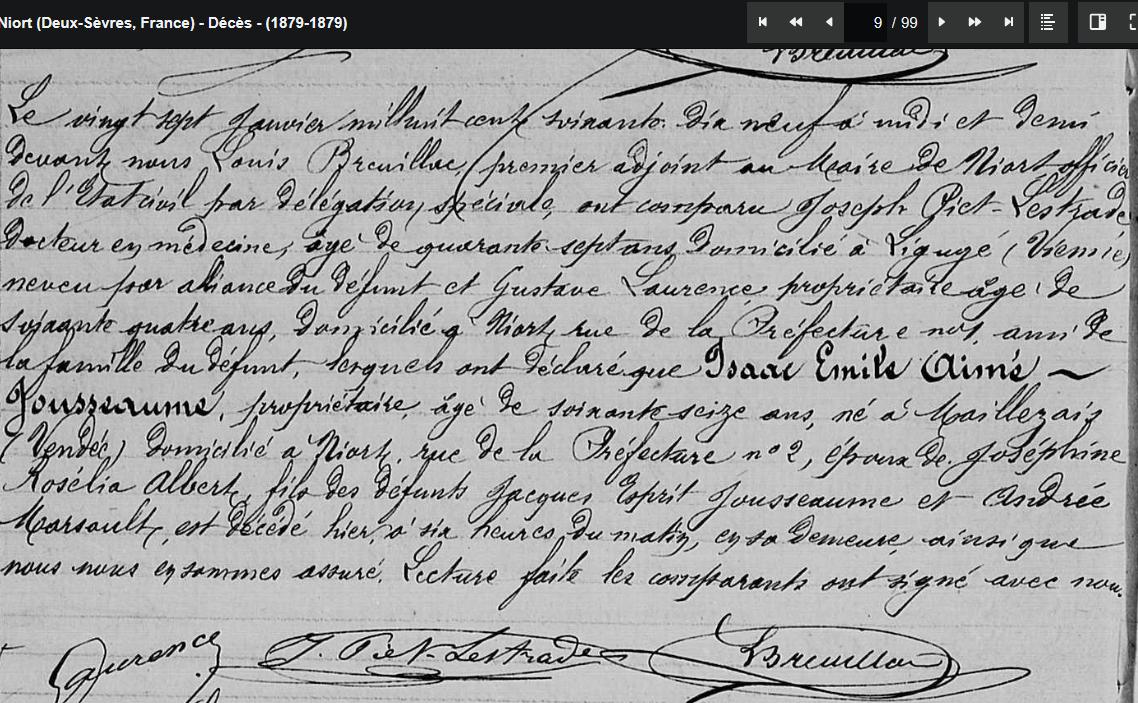 Niort (Deux-Sèvres, France) - Décès - (1879-1879)
9 / 99
LBreuillac
Le vingt sept Janvier mil huit cent soixante dix neuf à midi et demi
devant nous Louis Breuillac, premier adjoint au Maire de Niort officier
de l'Etat civil par délégation spéciale, ont comparu Joseph Piet-Lestrade
docteur en médecine, âgé de quarante sept ans domicilié à Ligugé (Vienne)
neveu par alliance du défunt et Gustave Laurence propriétaire âgé de
soixante quatre ans, domicilié à Niort, rue de la Préfecture n° 1, ami de
la famille du défunt, lesquels ont déclaré que Isaac Emile Aimé
Jousseaume, propriétaire, âgé de soixante seize ans, né à Maillezais
(Vendée) domicilié à Niort, rue de la Préfecture n° 2, époux de Joséphine
Rosélia Albert, fils des défunts Jacques Esprit Jousseaume et Andrée
Marsault, est décédé hier, à six heures du matin, en sa demeure, ainsi que
nous nous en sommes assuré. Lecture faite les comparants ont signé avec nous.
Laurence J. Piet Lestrade LBreuillac